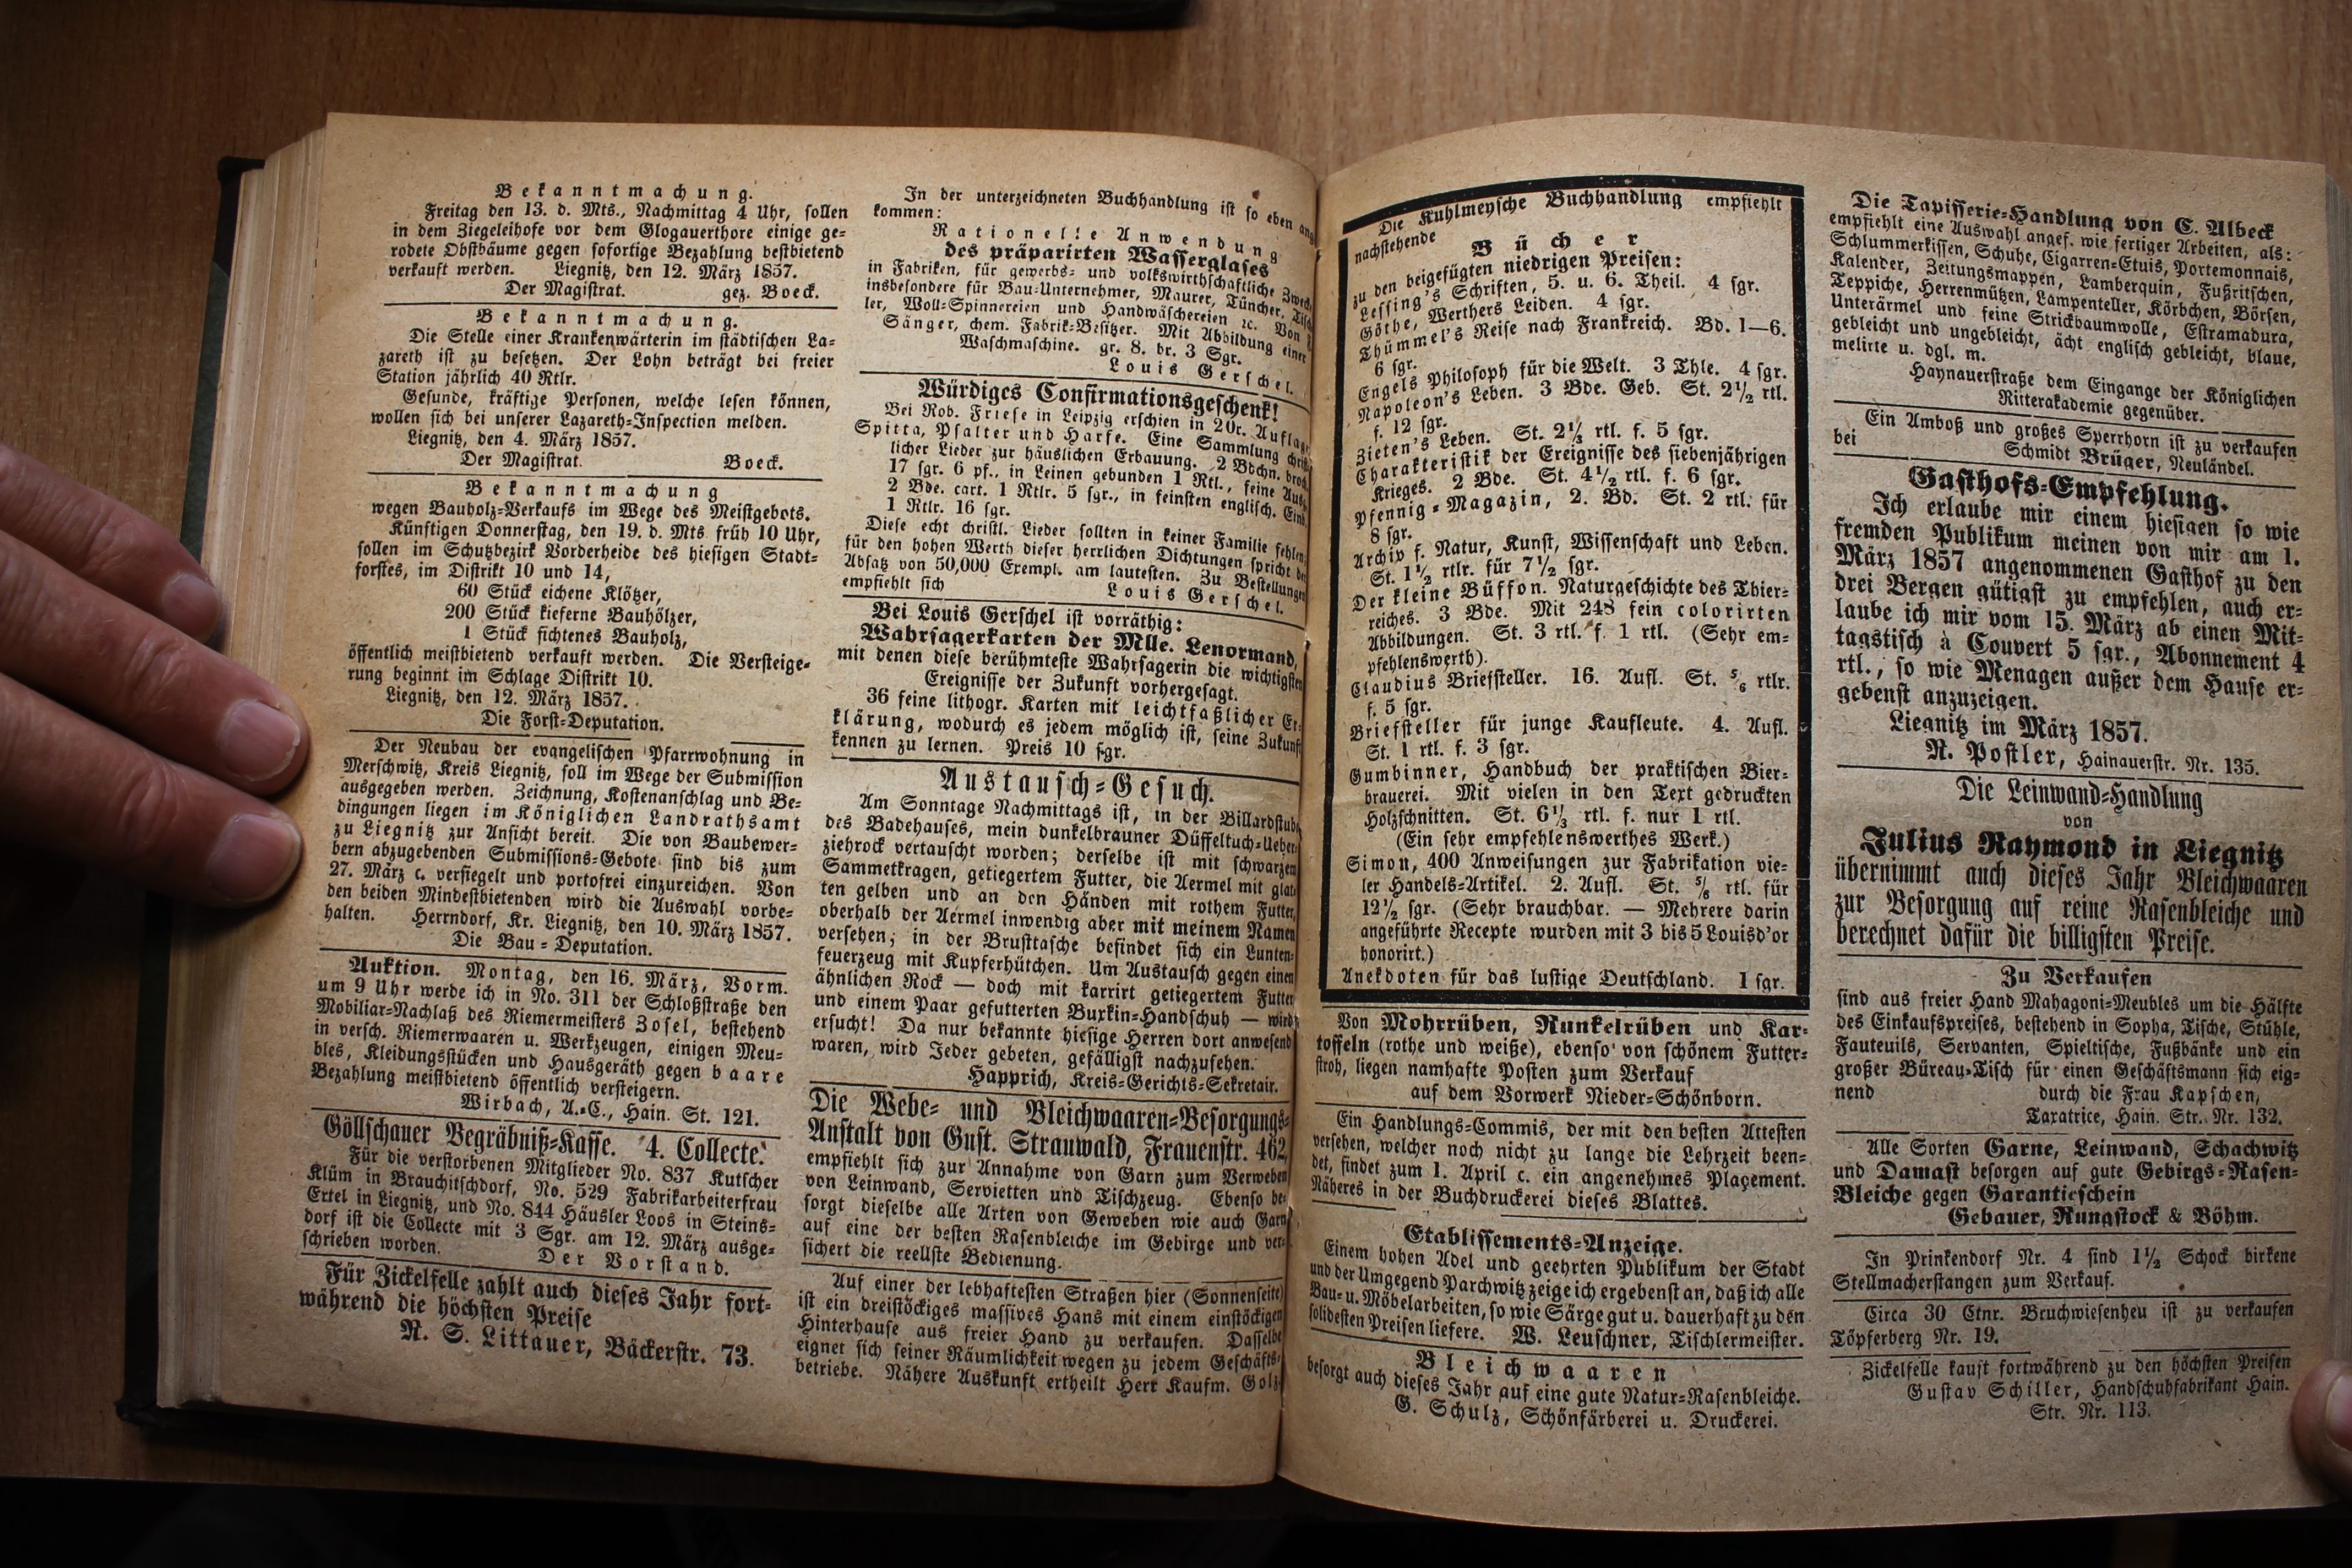 Bekanntmachung.
Freitag den 13. d. Mts., Nachmittag 4 Uhr, sollen
in dem Ziegeleihofe vor dem Glogauerthore einige ge-
rodete Obstbäume gegen sofortige Bezahlung bestbietend
verkauft werden. Liegnitz, den 12. März 1857.
Der Magistrat. gez. Boeck.
Bekanntmachung.
Die Stelle einer Krankenwärterin im städtischen La-
zareth ist zu besetzen. Der Lohn beträgt bei freier
Station jährlich 40 Rtlr.
Gesunde, kräftige Personen, welche lesen können,
wollen sich bei unserer Lazareth-Inspection melden.
Liegnitz, den 4. März 1857.
Der Magistrat. Boeck.
Bekanntmachung
wegen Bauholz-Verkaufs im Wege des Meistgebots.
Künftigen Donnerstag, den 19. d. Mts früh 10 Uhr,
sollen im Schutzbezirk Vorderheide des hiesigen Stadt-
forstes, im Distrikt 10 und 14,
60 Stück eichene Klötzer,
200 Stück kieferne Bauhölzer,
1 Stück fichtenes Bauholz,
öffentlich meistbietend verkauft werden. Die Versteige-
rung beginnt im Schlage Distrikt 10.
Liegnitz, den 12. März 1857.
Die Forst-Deputation.
Der Neubau der evangelischen Pfarrwohnung in
Merschwitz, Kreis Liegnitz, soll im Wege der Submission
ausgegeben werden. Zeichnung, Kostenanschlag und Be-
dingungen liegen im Königlichen Landrathsamt
zu Liegnitz zur Ansicht bereit. Die von Baubewer-
bern abzugebenden Submissions-Gebote sind bis zum
27. März c. versiegelt und portofrei einzureichen. Von
den beiden Mindestbietenden wird die Auswahl vorbe-
halten. Herrndorf, Kr. Liegnitz, den 10. März 1857.
Die Bau-Deputation.
Auktion. Montag, den 16. März, Vorm.
um 9 Uhr werde ich in No. 311 der Schloßstraße den
Mobiliar-Nachlaß des Riemermeisters Zosel, bestehend
in versch. Riemerwaaren u. Werkzeugen, einigen Meu-
bles, Kleidungsstücken und Hausgeräth gegen baare
Bezahlung meistbietend öffentlich versteigern.
Wirbach, A.-C., Hain. St. 121.
Göllschauer Begräbniß-Kasse. 4. Collecte.
Für die verstorbenen Mitglieder No. 837 Kutscher
Klüm in Brauchitschdorf, No. 529 Fabrikarbeiterfrau
Ertel in Liegnitz, und No. 844 Häusler Loos in Steins-
dorf ist die Collecte mit 3 Sgr. am 12. März ausge-
schrieben worden. Der Vorstand.
Für Zickelfelle zahlt auch dieses Jahr fort-
während die höchsten Preise
R. S. Littauer, Bäckerstr. 73.
In der unterzeichneten Buchhandlung ist so eben ang
kommen:
Rationelle Anwendung
des präparirten Wasserglases
in Fabriken, für gewerbs- und volkswirthschaftliche Zweck
insbesondere für Bau-Unternehmer, Maurer, Tüncher, Tisch
ler, Woll-Spinnereien und Handwäschereien ec. Von
Sänger, chem. Fabrik-Besitzer. Mit Abbildung einer
Waschmaschine. gr. 8. br. 3 Sgr.
Louis Gerschel.
Würdiges Confirmationsgeschenk!
Bei Rob. Friese in Leipzig erschien in 20r. Auflage
Spitta, Psalter und Harfe. Eine Sammlung christ
licher Lieder zur häuslichen Erbauung. 2 Bdchn. broch
17 sgr. 6 pf., in Leinen gebunden 1 Rtl., feine Ausg
2 Bde. cart. 1 Rtlr. 5 sgr., in feinsten englisch. Einb
1 Rtlr. 16 sgr.
Diese echt christl. Lieder sollten in keiner Familie fehlen,
für den hohen Werth dieser herrlichen Dichtungen spricht der
Absatz von 50,000 Exempl. am lautesten. Zu Bestellungen
empfiehlt sich Louis Gerschel.
Bei Louis Gerschel ist vorräthig:
Wahrsagerkarten der Mlle. Lenormand,
mit denen diese berühmteste Wahrsagerin die wichtigsten
Ereignisse der Zukunft vorhergesagt.
36 feine lithogr. Karten mit leichtfaßlicher Er-
klärung, wodurch es jedem möglich ist, seine Zukunft
kennen zu lernen. Preis 10 sgr.
Austausch-Gesuch.
Am Sonntage Nachmittags ist, in der Billardstube
des Badehauses, mein dunkelbrauner Düffeltuch-Ueber-
ziehrock vertauscht worden; derselbe ist mit schwarzem
Sammetkragen, getiegertem Futter, die Aermel mit glat-
ten gelben und an den Händen mit rothem Futter,
oberhalb der Aermel inwendig aber mit meinem Namen
versehen; in der Brusttasche befindet sich ein Lunten-
feuerzeug mit Kupferhütchen. Um Austausch gegen einen
ähnlichen Rock — doch mit karrirt getiegertem Futter
und einem Paar gefutterten Buxkin-Handschuh — wird
ersucht! Da nur bekannte hiesige Herren dort anwesend
waren, wird Jeder gebeten, gefälligst nachzusehen.
Happrich, Kreis-Gerichts-Sekretair.
Die Webe- und Bleichwaaren-Besorgungs-
Anstalt von Gust. Strauwald, Frauenstr. 462,
empfiehlt sich zur Annahme von Garn zum Verweben
von Leinwand, Servietten und Tischzeug. Ebenso be-
sorgt dieselbe alle Arten von Geweben wie auch Garn
auf eine der besten Rasenbleiche im Gebirge und ver-
sichert die reellste Bedienung.
Auf einer der lebhaftesten Straßen hier (Sonnenseite)
ist ein dreistöckiges massives Hans mit einem einstöckigen
Hinterhause aus freier Hand zu verkaufen. Dasselbe
eignet sich seiner Räumlichkeit wegen zu jedem Geschäfts-
betriebe. Nähere Auskunft ertheilt Herr Kaufm. Golz
Die Kuhlmeysche Buchhandlung empfiehlt
nachstehende
Bücher
zu den beigefügten niedrigen Preisen:
Lessing's Schriften, 5. u. 6. Theil. 4 sgr.
Göthe, Werthers Leiden. 4 sgr.
Thümmel's Reise nach Frankreich. Bd. 1—6.
6 sgr.
Engels Philosoph für die Welt. 3 Thle. 4 sgr.
Napoleon's Leben. 3 Bde. Geb. St. 2½ rtl.
f. 12 sgr.
Zieten's Leben. St. 2⅓ rtl. f. 5 sgr.
Charakteristik der Ereignisse des siebenjährigen
Krieges. 2 Bde. St. 4½ rtl. f. 6 sgr.
Pfennig-Magazin, 2. Bd. St. 2 rtl. für
8 sgr.
Archiv f. Natur, Kunst, Wissenschaft und Leben.
St. 1½ rtlr. für 7½ sgr.
Der kleine Büffon. Naturgeschichte des Thier-
reiches. 3 Bde. Mit 248 fein colorirten
Abbildungen. St. 3 rtl. f. 1 rtl. (Sehr em-
pfehlenswerth).
Claudius Briefsteller. 16. Aufl. St. ⅚ rtlr.
f. 5 sgr.
Briefsteller für junge Kaufleute. 4. Aufl.
St. 1 rtl. f. 3 sgr.
Gumbinner, Handbuch der praktischen Bier-
brauerei. Mit vielen in den Text gedruckten
Holzschnitten. St. 6⅓ rtl. f. nur 1 rtl.
(Ein sehr empfehlenswerthes Werk.)
Simon, 400 Anweisungen zur Fabrikation vie-
ler Handels-Artikel. 2. Aufl. St. ⅚ rtl. für
12½ sgr. (Sehr brauchbar. — Mehrere darin
angeführte Recepte wurden mit 3 bis 5 Louisd'or
honorirt.)
Anekdoten für das lustige Deutschland. 1 sgr.
Von Mohrrüben, Runkelrüben und Kar-
toffeln (rothe und weiße), ebenso von schönem Futter-
stroh, liegen namhafte Posten zum Verkauf
auf dem Vorwerk Nieder-Schönborn.
Ein Handlungs-Commis, der mit den besten Attesten
versehen, welcher noch nicht zu lange die Lehrzeit been-
det, findet zum 1. April c. ein angenehmes Plaçement.
Näheres in der Buchdruckerei dieses Blattes.
Etablissements-Anzeige.
Einem hohen Adel und geehrten Publikum der Stadt
und der Umgegend Parchwitz zeige ich ergebenst an, daß ich alle
Bau- u. Möbelarbeiten, so wie Särge gut u. dauerhaft zu den
solidesten Preisen liefere. W. Leuschner, Tischlermeister.
Bleichwaaren
besorgt auch dieses Jahr auf eine gute Natur-Rasenbleiche.
G. Schulz, Schönfärberei u. Druckerei.
Die Tapisserie-Handlung von C. Albeck
empfiehlt eine Auswahl angef. wie fertiger Arbeiten, als:
Schlummerkissen, Schuhe, Cigarren-Etuis, Portemonnais,
Kalender, Zeitungsmappen, Lamberquin, Fußritschen,
Teppiche, Herrenmützen, Lampenteller, Körbchen, Börsen,
Unterärmel und feine Strickbaumwolle, Estramadura,
gebleicht und ungebleicht, ächt englisch gebleicht, blaue,
melirte u. dgl. m.
Haynauerstraße dem Eingange der Königlichen
Ritterakademie gegenüber.
Ein Amboß und großes Sperrhorn ist zu verkaufen
bei Schmidt Brüger, Neuländel.
Gasthofs-Empfehlung.
Ich erlaube mir einem hiesigen so wie
fremden Publikum meinen von mir am 1.
März 1857 angenommenen Gasthof zu den
drei Bergen gütigst zu empfehlen, auch er-
laube ich mir vom 15. März ab einen Mit-
tagstisch à Couvert 5 sgr., Abonnement 4
rtl., so wie Menagen außer dem Hause er-
gebenst anzuzeigen.
Liegnitz im März 1857.
R. Postler, Hainauerstr. Nr. 135.
Die Leinwand-Handlung
von
Julius Raymond in Liegnitz
übernimmt auch dieses Jahr Bleichwaaren
zur Besorgung auf reine Rasenbleiche und
berechnet dafür die billigsten Preise.
Zu Verkaufen
sind aus freier Hand Mahagoni-Meubles um die Hälfte
des Einkaufspreises, bestehend in Sopha, Tische, Stühle,
Fauteuils, Servanten, Spieltische, Fußbänke und ein
großer Büreau-Tisch für einen Geschäftsmann sich eig-
nend durch die Frau Kapschen,
Taxatrice, Hain. Str. Nr. 132.
Alle Sorten Garne, Leinwand, Schachwitz
und Damast besorgen auf gute Gebirgs-Rasen-
Bleiche gegen Garantieschein
Gebauer, Rungstock & Böhm.
In Prinkendorf Nr. 4 sind 1½ Schock birkene
Stellmacherstangen zum Verkauf.
Circa 30 Ctnr. Bruchwiesenheu ist zu verkaufen
Töpferberg Nr. 19.
Zickelfelle kauft fortwährend zu den höchsten Preisen
Gustav Schiller, Handschuhfabrikant Hain.
Str. Nr. 113.